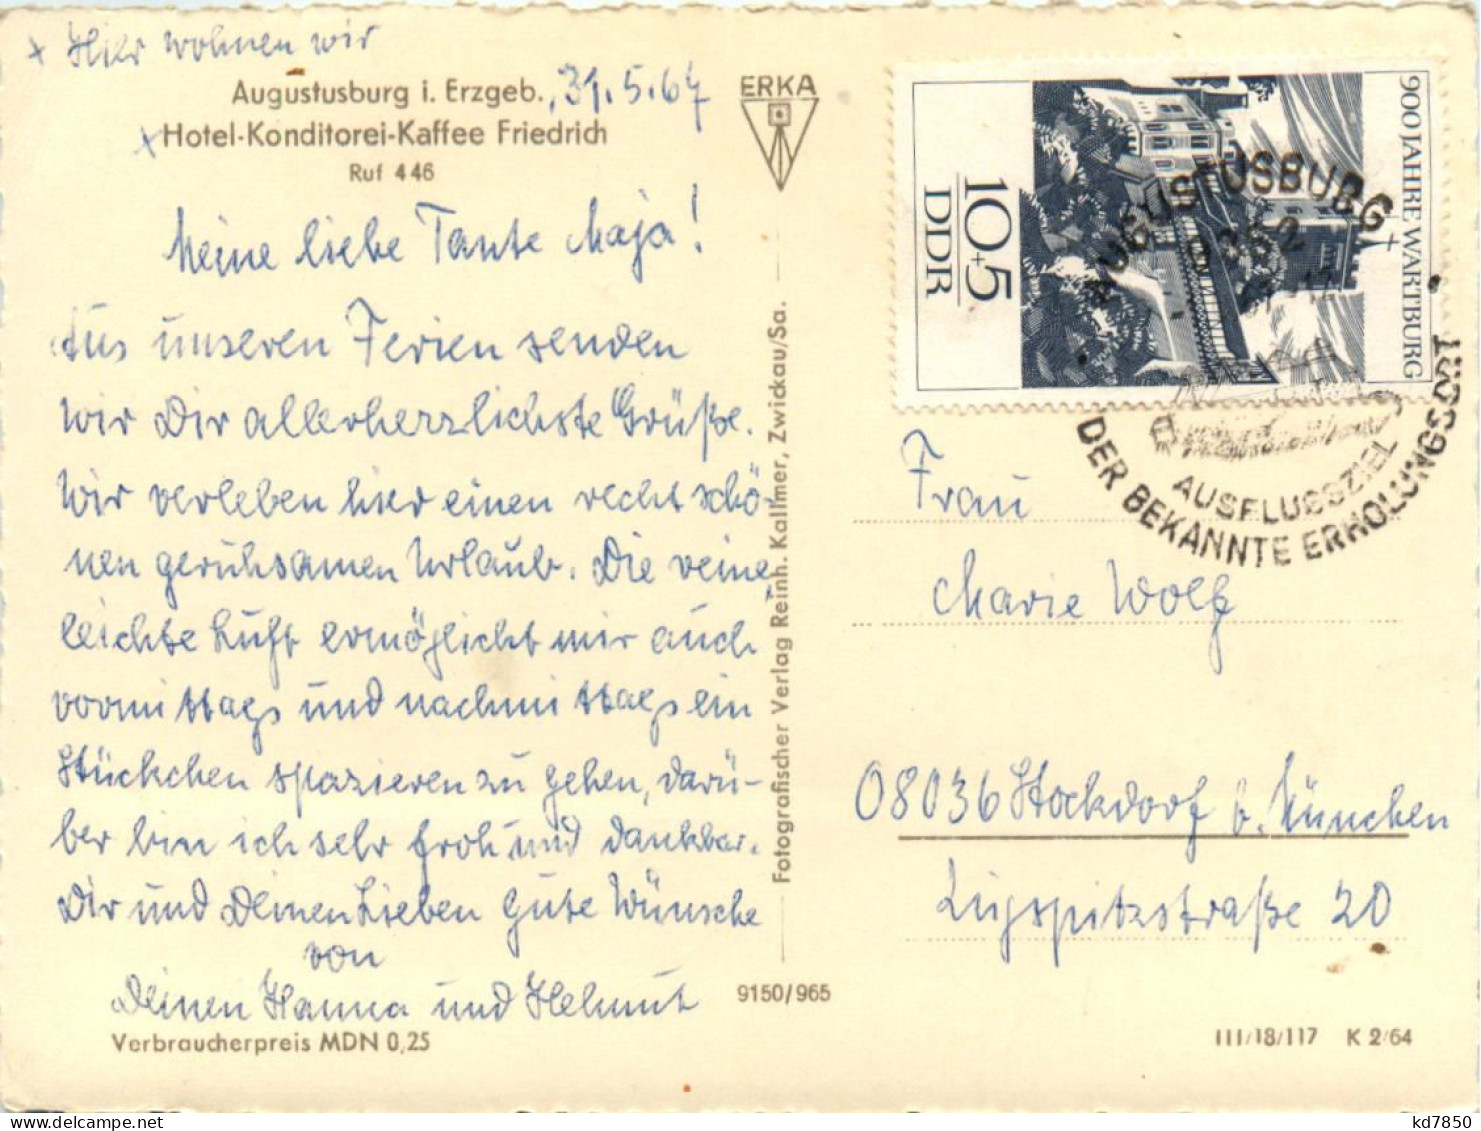 x Hier wohnen wir
Augustusburg i. Erzgeb., 31.5.67
x Hotel-Konditorei-Kaffee Friedrich
Ruf 446
Meine liebe Tante Maja!
Aus unseren Ferien senden
wir Dir allerherzlichste Grüße.
Wir verleben hier einen recht schö-
nen geruhsamen Urlaub. Die reine,
leichte Luft ermöglicht mir auch
vormittags und nachmittags ein
Stückchen spazieren zu gehen, darü-
ber bin ich sehr froh und dankbar.
Dir und Deinen Lieben gute Wünsche
von
Deinen Hanna und Helmut
Verbraucherpreis MDN 0,25
ERKA
Fotografischer Verlag Reinh. Kallmer, Zwickau/Sa.
9150/965
900 JAHRE WARTBURG
10+5
DDR
AUGUSTUSBURG
9382
AUSFLUGSZIEL
DER BEKANNTE ERHOLUNGSORT
Frau
Marie Wolf
08036 Stockdorf b. München
Zugspitzstraße 20
III/18/117 K 2/64
kd7850